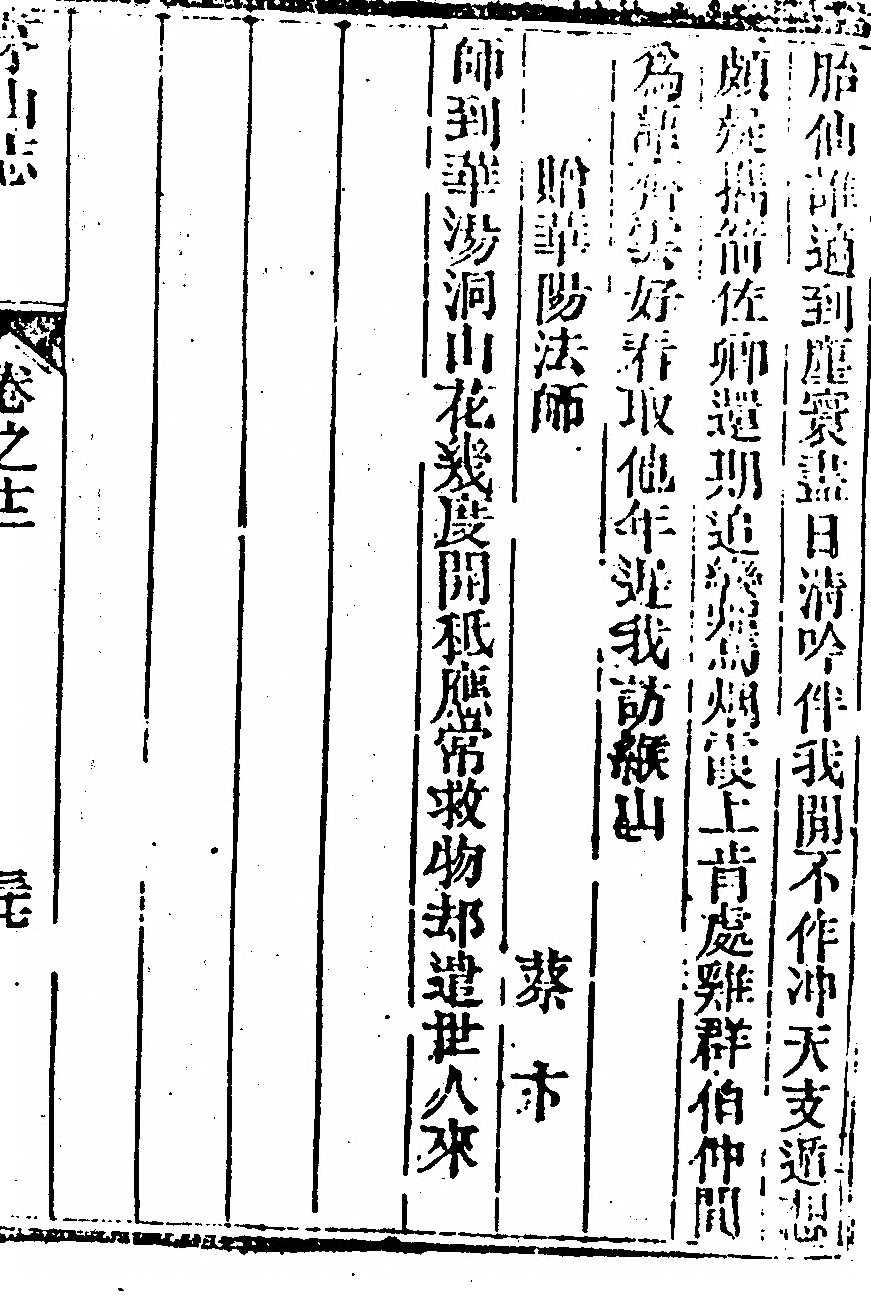 胎仙誰遣到塵寰盡日清吟伴我閒不作沖天支遁想
頗疑攜箭佐卿還期追驥馬烟霞上肯處雞群伯仲間
為語齊雲好看取他年逐我訪緱山
贈華陽法師
蔡卞
師到華湯洞山花幾度開秪應常救物却遣世人來
茅山志
卷之十二